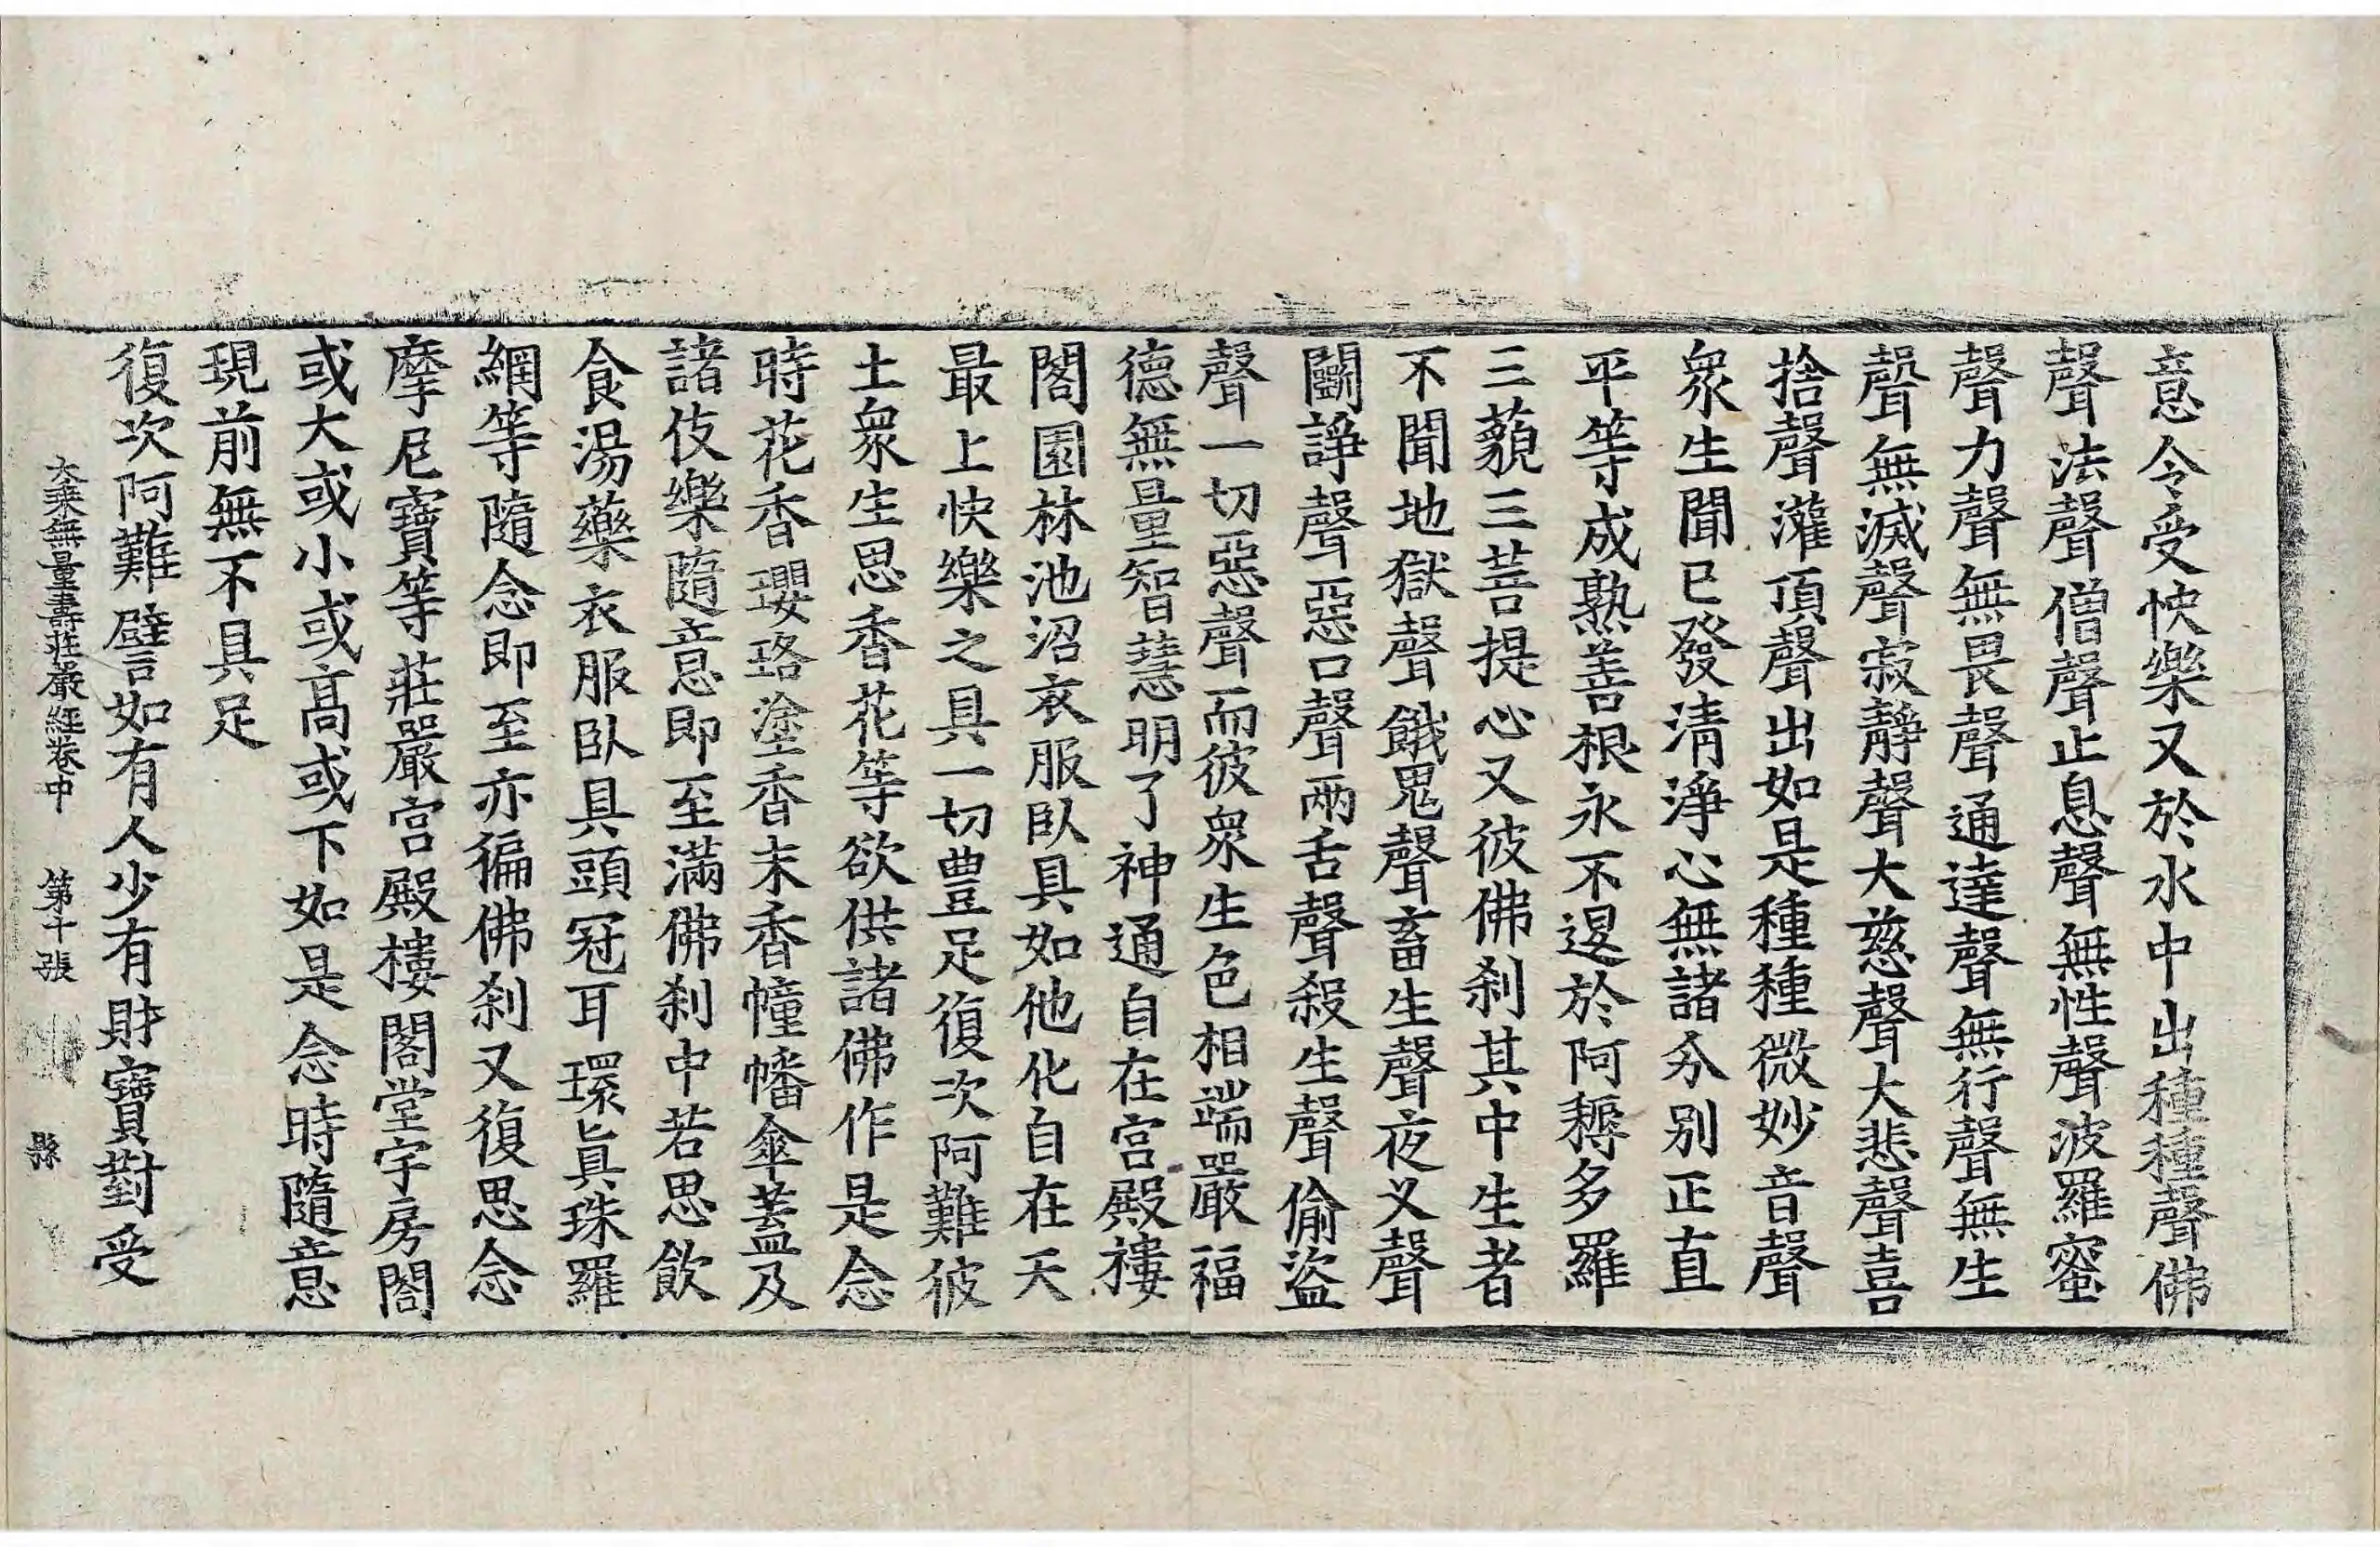 意令受快樂又於水中出種種聲佛
聲法聲僧聲止息聲無性聲波羅蜜
聲力聲無畏聲通達聲無行聲無生
聲無滅聲寂靜聲大慈聲大悲聲喜
捨聲灌頂聲出如是種種微妙音聲
衆生聞已發清淨心無諸分別正直
平等成熟善根永不退於阿耨多羅
三藐三菩提心又彼佛刹其中生者
不聞地獄聲餓鬼聲畜生聲夜叉聲
鬭諍聲惡口聲兩舌聲殺生聲偷盜
聲一切惡聲而彼衆生色相端嚴福
德無量智慧明了神通自在宮殿樓
閣園林池沼衣服臥具如他化自在天
最上快樂之具一切豊足復次阿難彼
土衆生思香花等欲供諸佛作是念
時花香瓔珞塗香末香幢幡傘蓋及
諸伎樂隨意即至滿佛刹中若思飲
食湯藥衣服臥具頭冠耳環眞珠羅
網等隨念即至亦徧佛刹又復思念
摩尼寶等莊嚴宮殿樓閣堂宇房閤
或大或小或髙或下如是念時隨意
現前無不具足
復次阿難譬如有人少有財寶對受
大乘無量壽莊嚴經卷中 第十張 縣